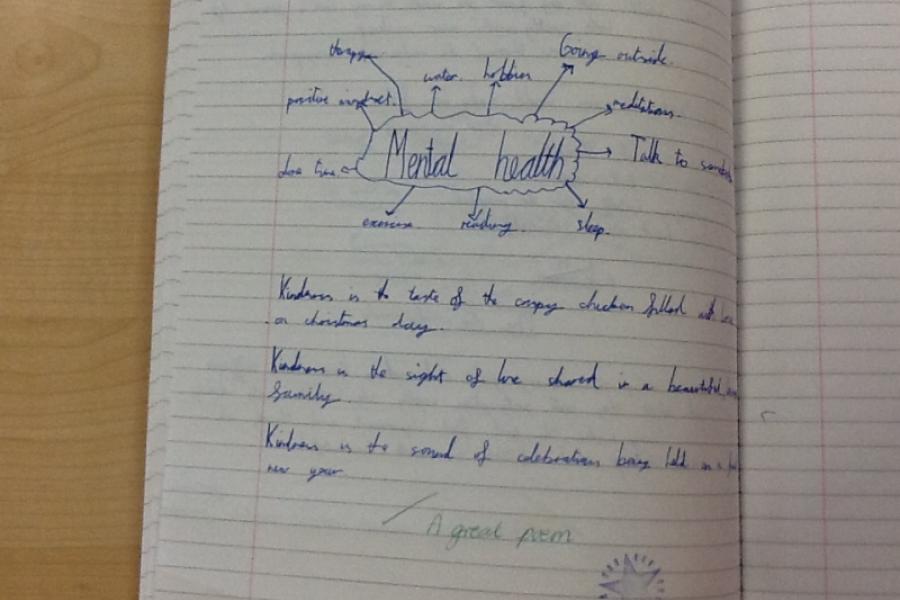 therapy
Going outside.
water.
hobbies
positive mindset.
meditations.
Mental health
Talk to
exercise
reading.
sleep.
Kindness is the taste of the crispy chicken filled with
on christmas day.
Kindness is the sight of love shared in a beautiful
family.
Kindness is the sound of celebrations being held in a
new year
A great poem